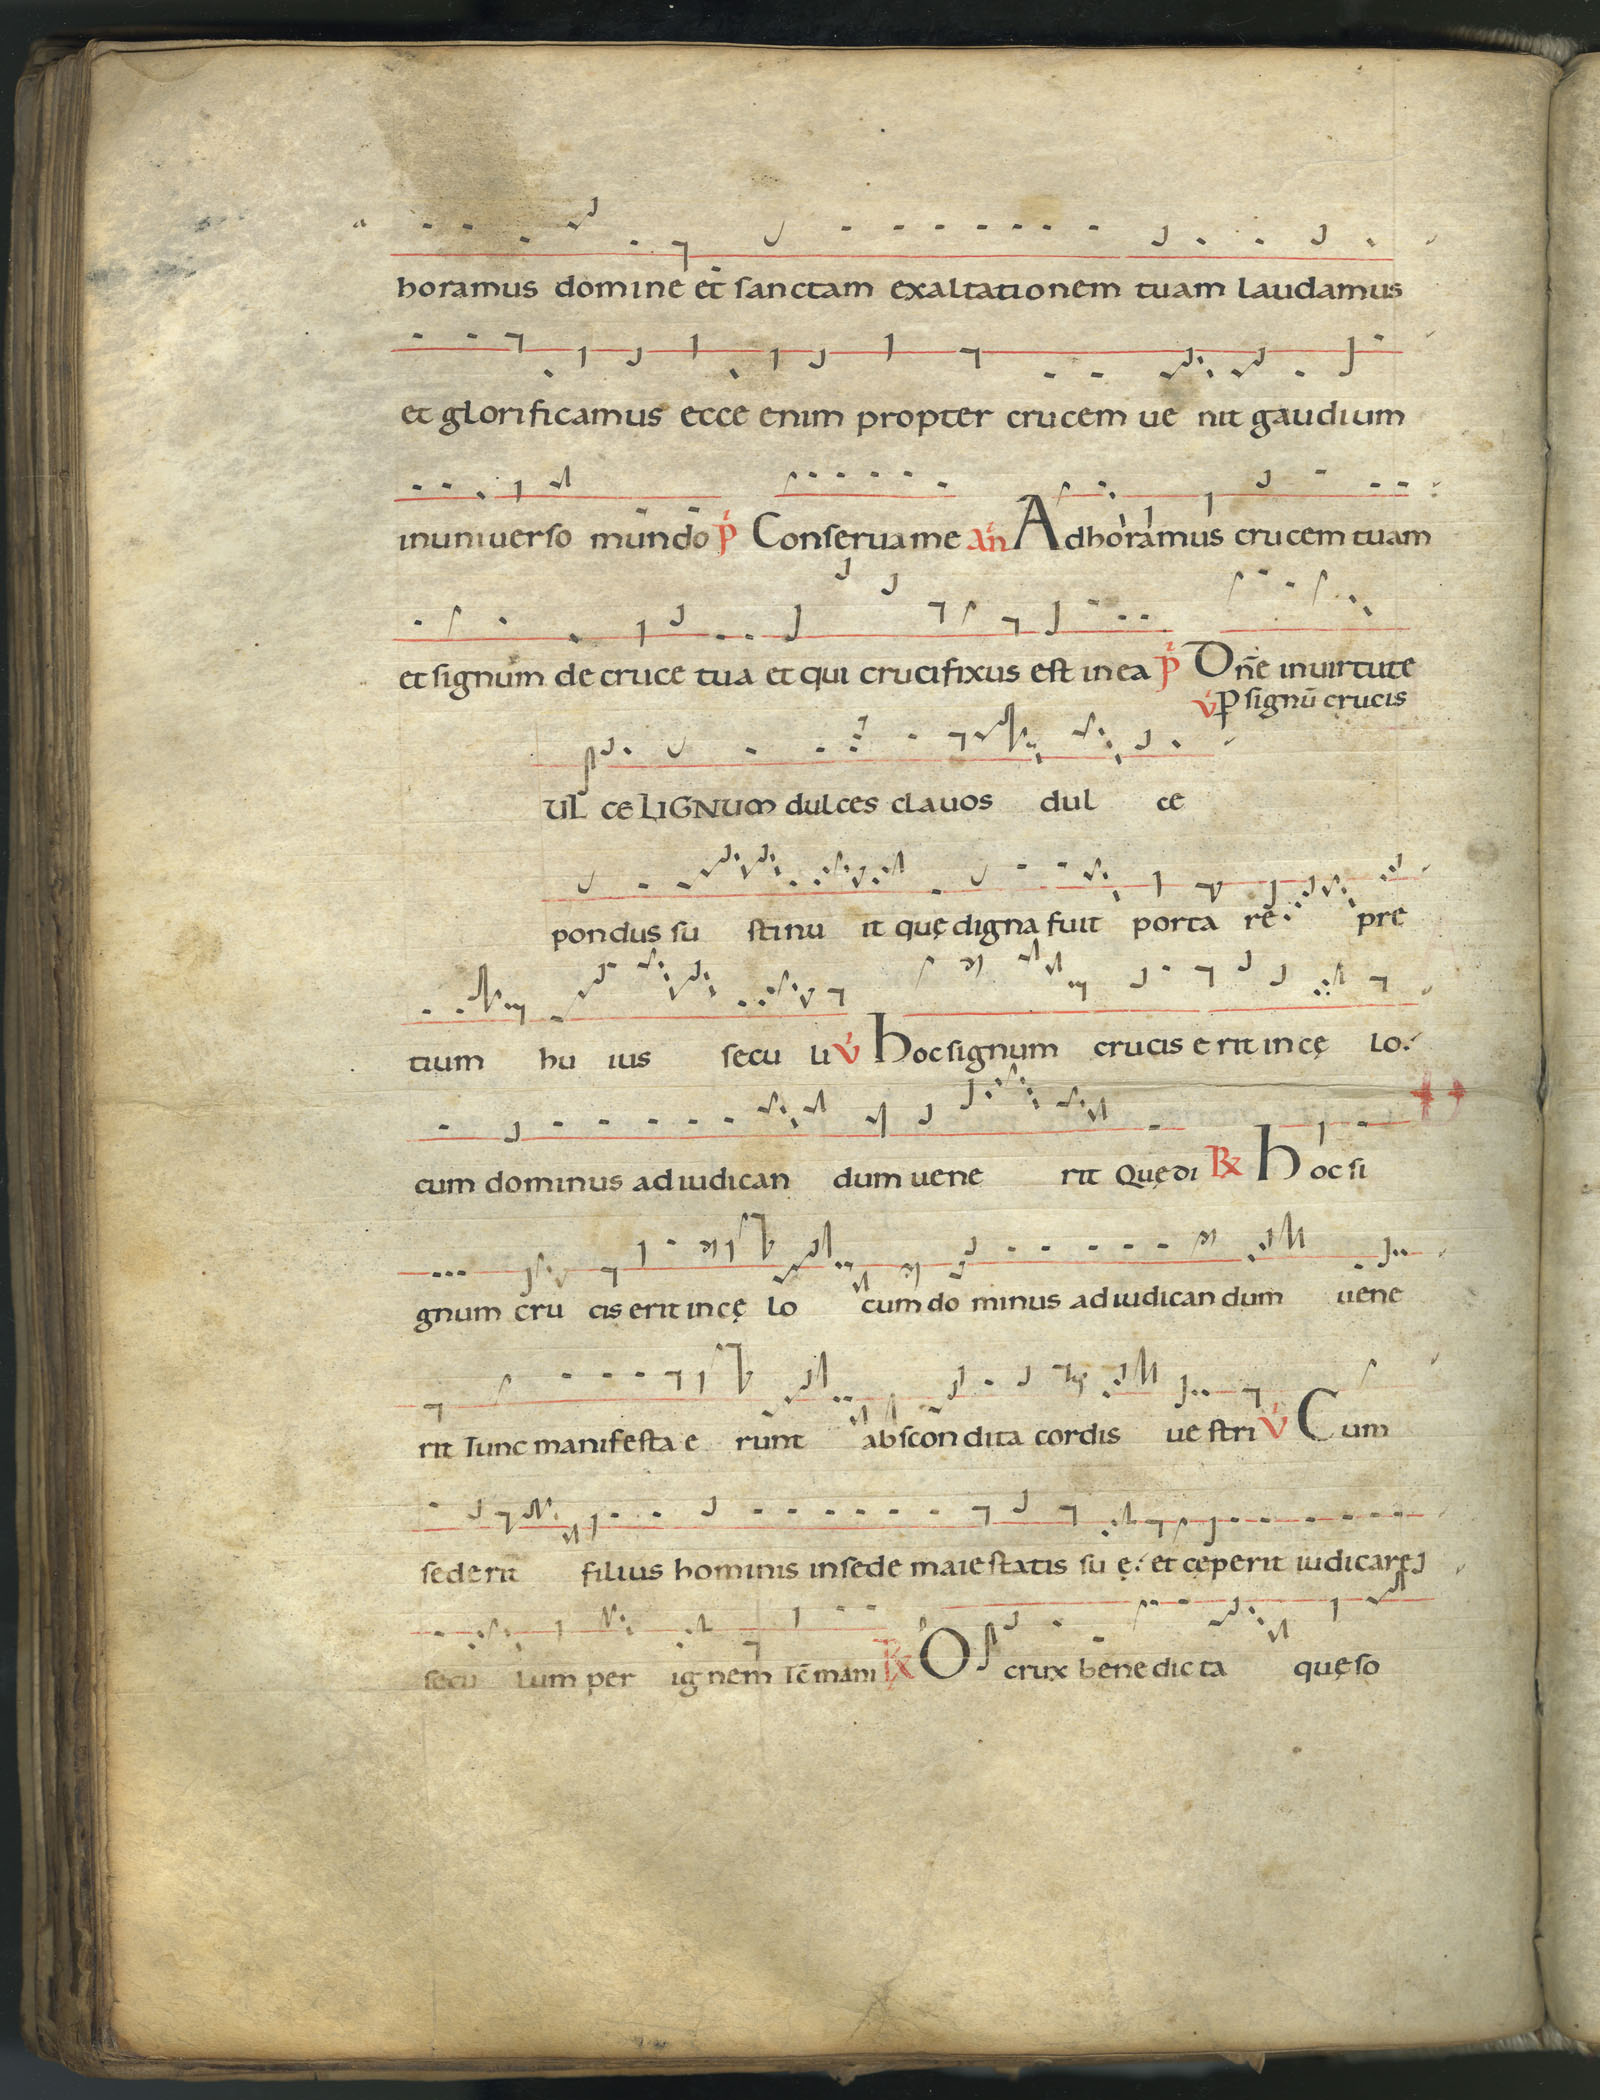 horamus domine et sanctam exaltationem tuam laudamus
et glorificamus ecce enim propter crucem ue nit gaudium
inuniuerso mundo p̄ Conserua me añ Adhoramus crucem tuam
et signum de cruce tua et qui crucifixus est in ea p̄ Dñe inuirtute
v̄ P signū crucis
UL ce LIGNUM dulces clauos dul ce
pondus su stinu it quę digna fuit porta re: pre
tium hu ius secu li v̄ hoc signum crucis e rit in cę lo.
cum dominus ad iudican dum uene rit Quędi ℞ hoc si
gnum cru cis erit in cę lo cum do minus ad iudican dum uene
rit Tunc manifesta e runt abscondita cordis ue stri v̄ Cum
sederit filius hominis insede maiestatis su ę: et cęperit iudicare
secu lum per ig nem Tc̄ mani ℞ O crux bene dic ta quę so